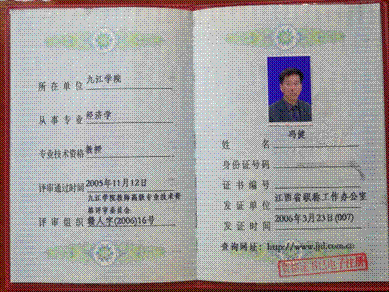 所在单位 九江学院
从事专业 经济学
专业技术资格 教授
评审通过时间 2005年11月12日
九江学院教师高级专业技术资
格评审委员会
评审组织 赣人字(2006)16号
冯健
姓名
身份证号码
证书编号
发证单位 江西省职称工作办公室
发证时间 2006年3月23日(007)
查询网址: http://www.jjd.com.cn